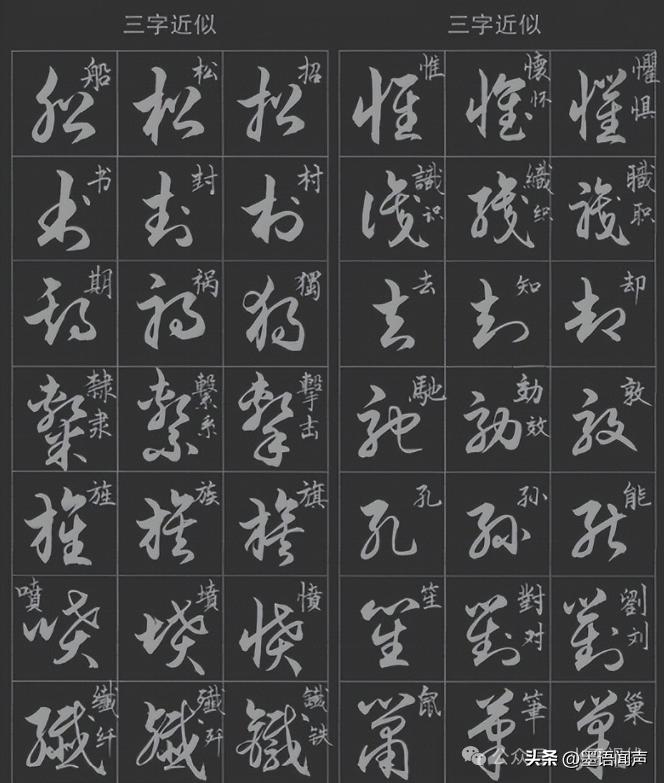 三字近似 三字近似
船 松 招 惟 懷怀 懼惧
书 封 村 識识 織织 職职
期 祸 獨 去 知 却
隸隶 繫系 擊击 馳 効效 敦
旌 族 旗 孔 孙 能
噴 墳 憤 笙 對对 劉刘
纖纤 殲歼 鐵铁 鼠 筆 巢
公众号
头条 @墨语闻声